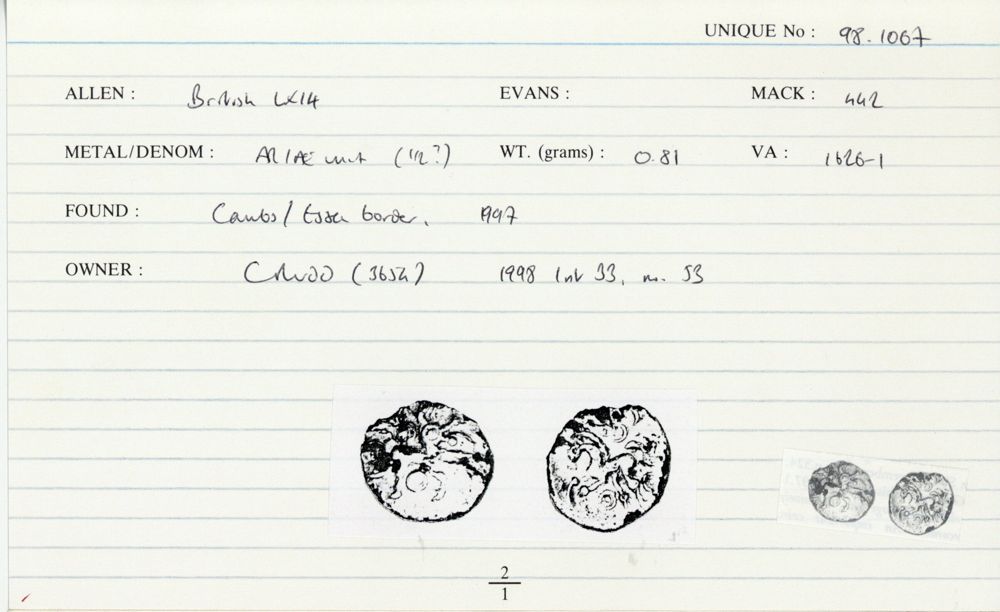 UNIQUE No : 98.1067
ALLEN : British LX14 EVANS : MACK : 442
METAL/DENOM : AR/AE unit (1/2?) WT. (grams) : 0.81 VA : 1626-1
FOUND : Cambs/Essex border, 1997
OWNER : (3654) 1998 33, no. 53
2
1